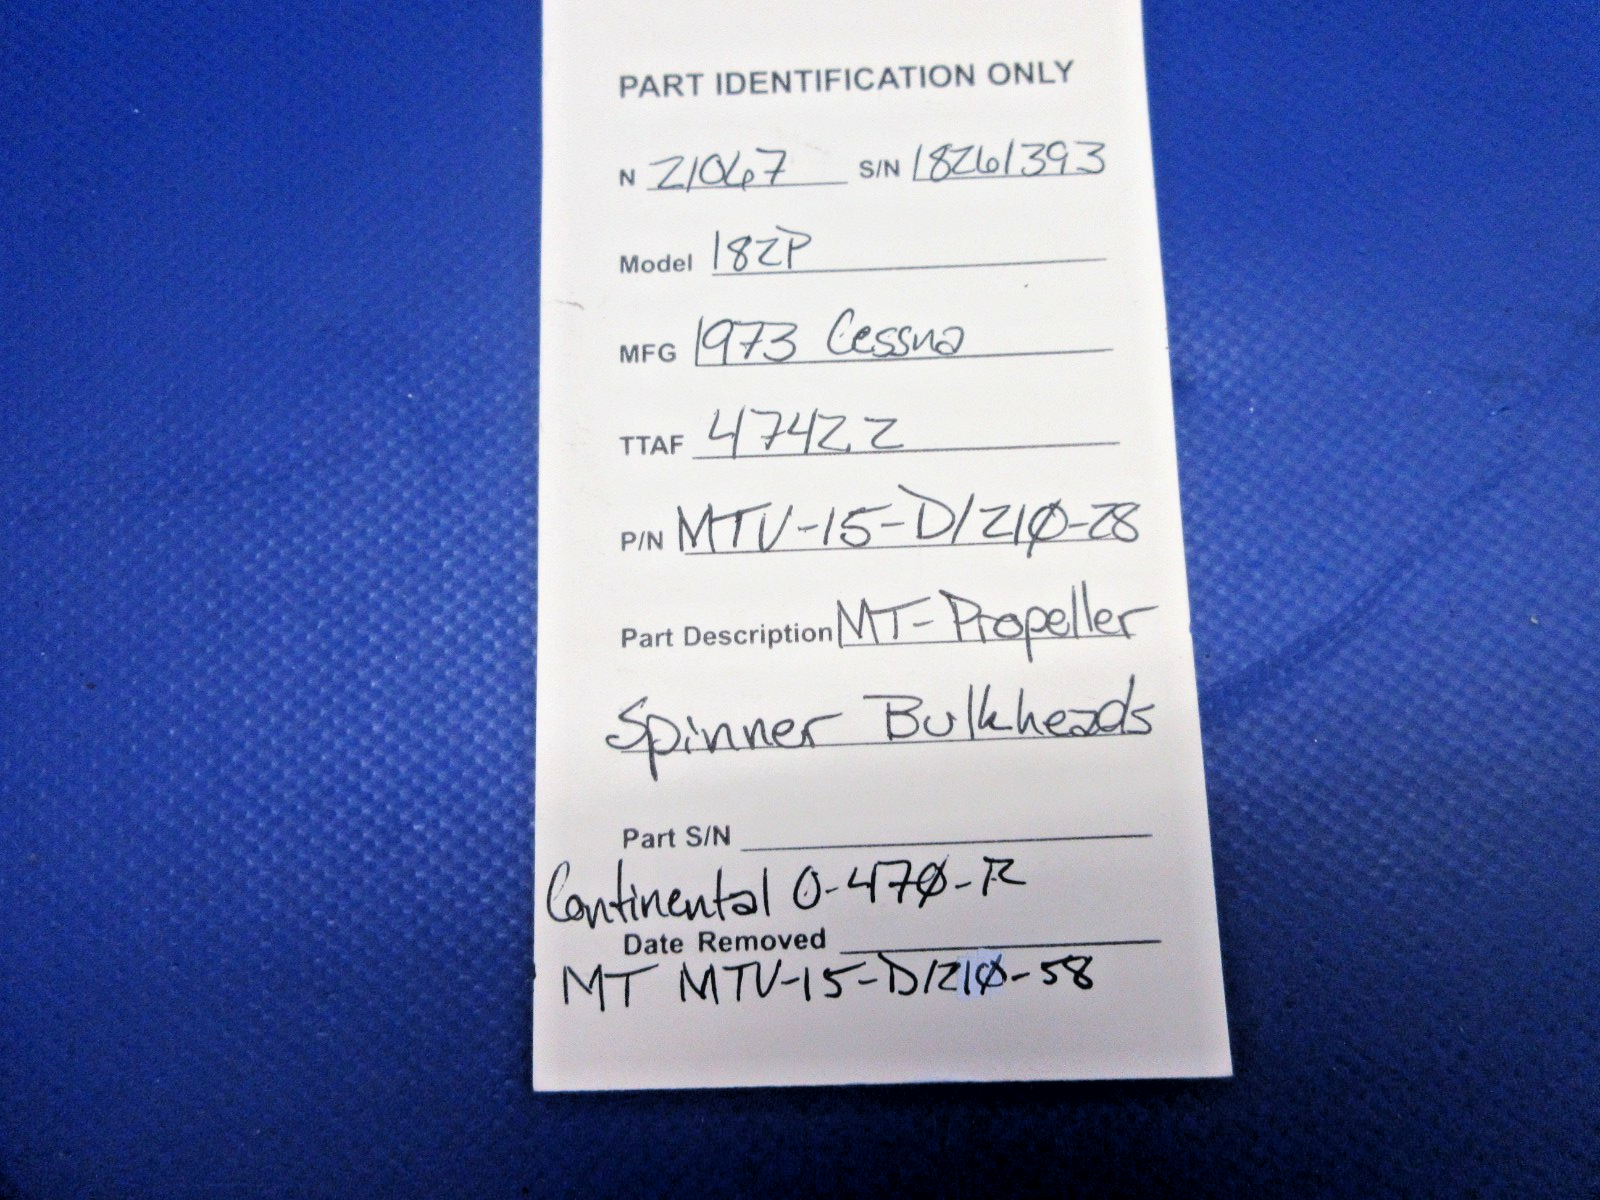 PART IDENTIFICATION ONLY
N 21067 S/N 18261393
Model 182P
MFG 1973 Cessna
TTAF 4742.2
P/N MTV-15-D/210-28
Part Description MT-Propeller
Spinner Bulkheads
Part S/N
Continental O-470-R
Date Removed
MT MTV-15-D/210-58